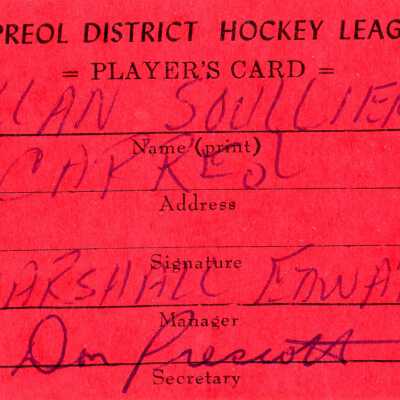 PREOL DISTRICT HOCKEY LEAG
= PLAYER'S CARD =
LLAN SOULLIER
Name (print)
CAPREOL
Address
Signature
MARSHALL EDWAR
Manager
Don Prescott
Secretary